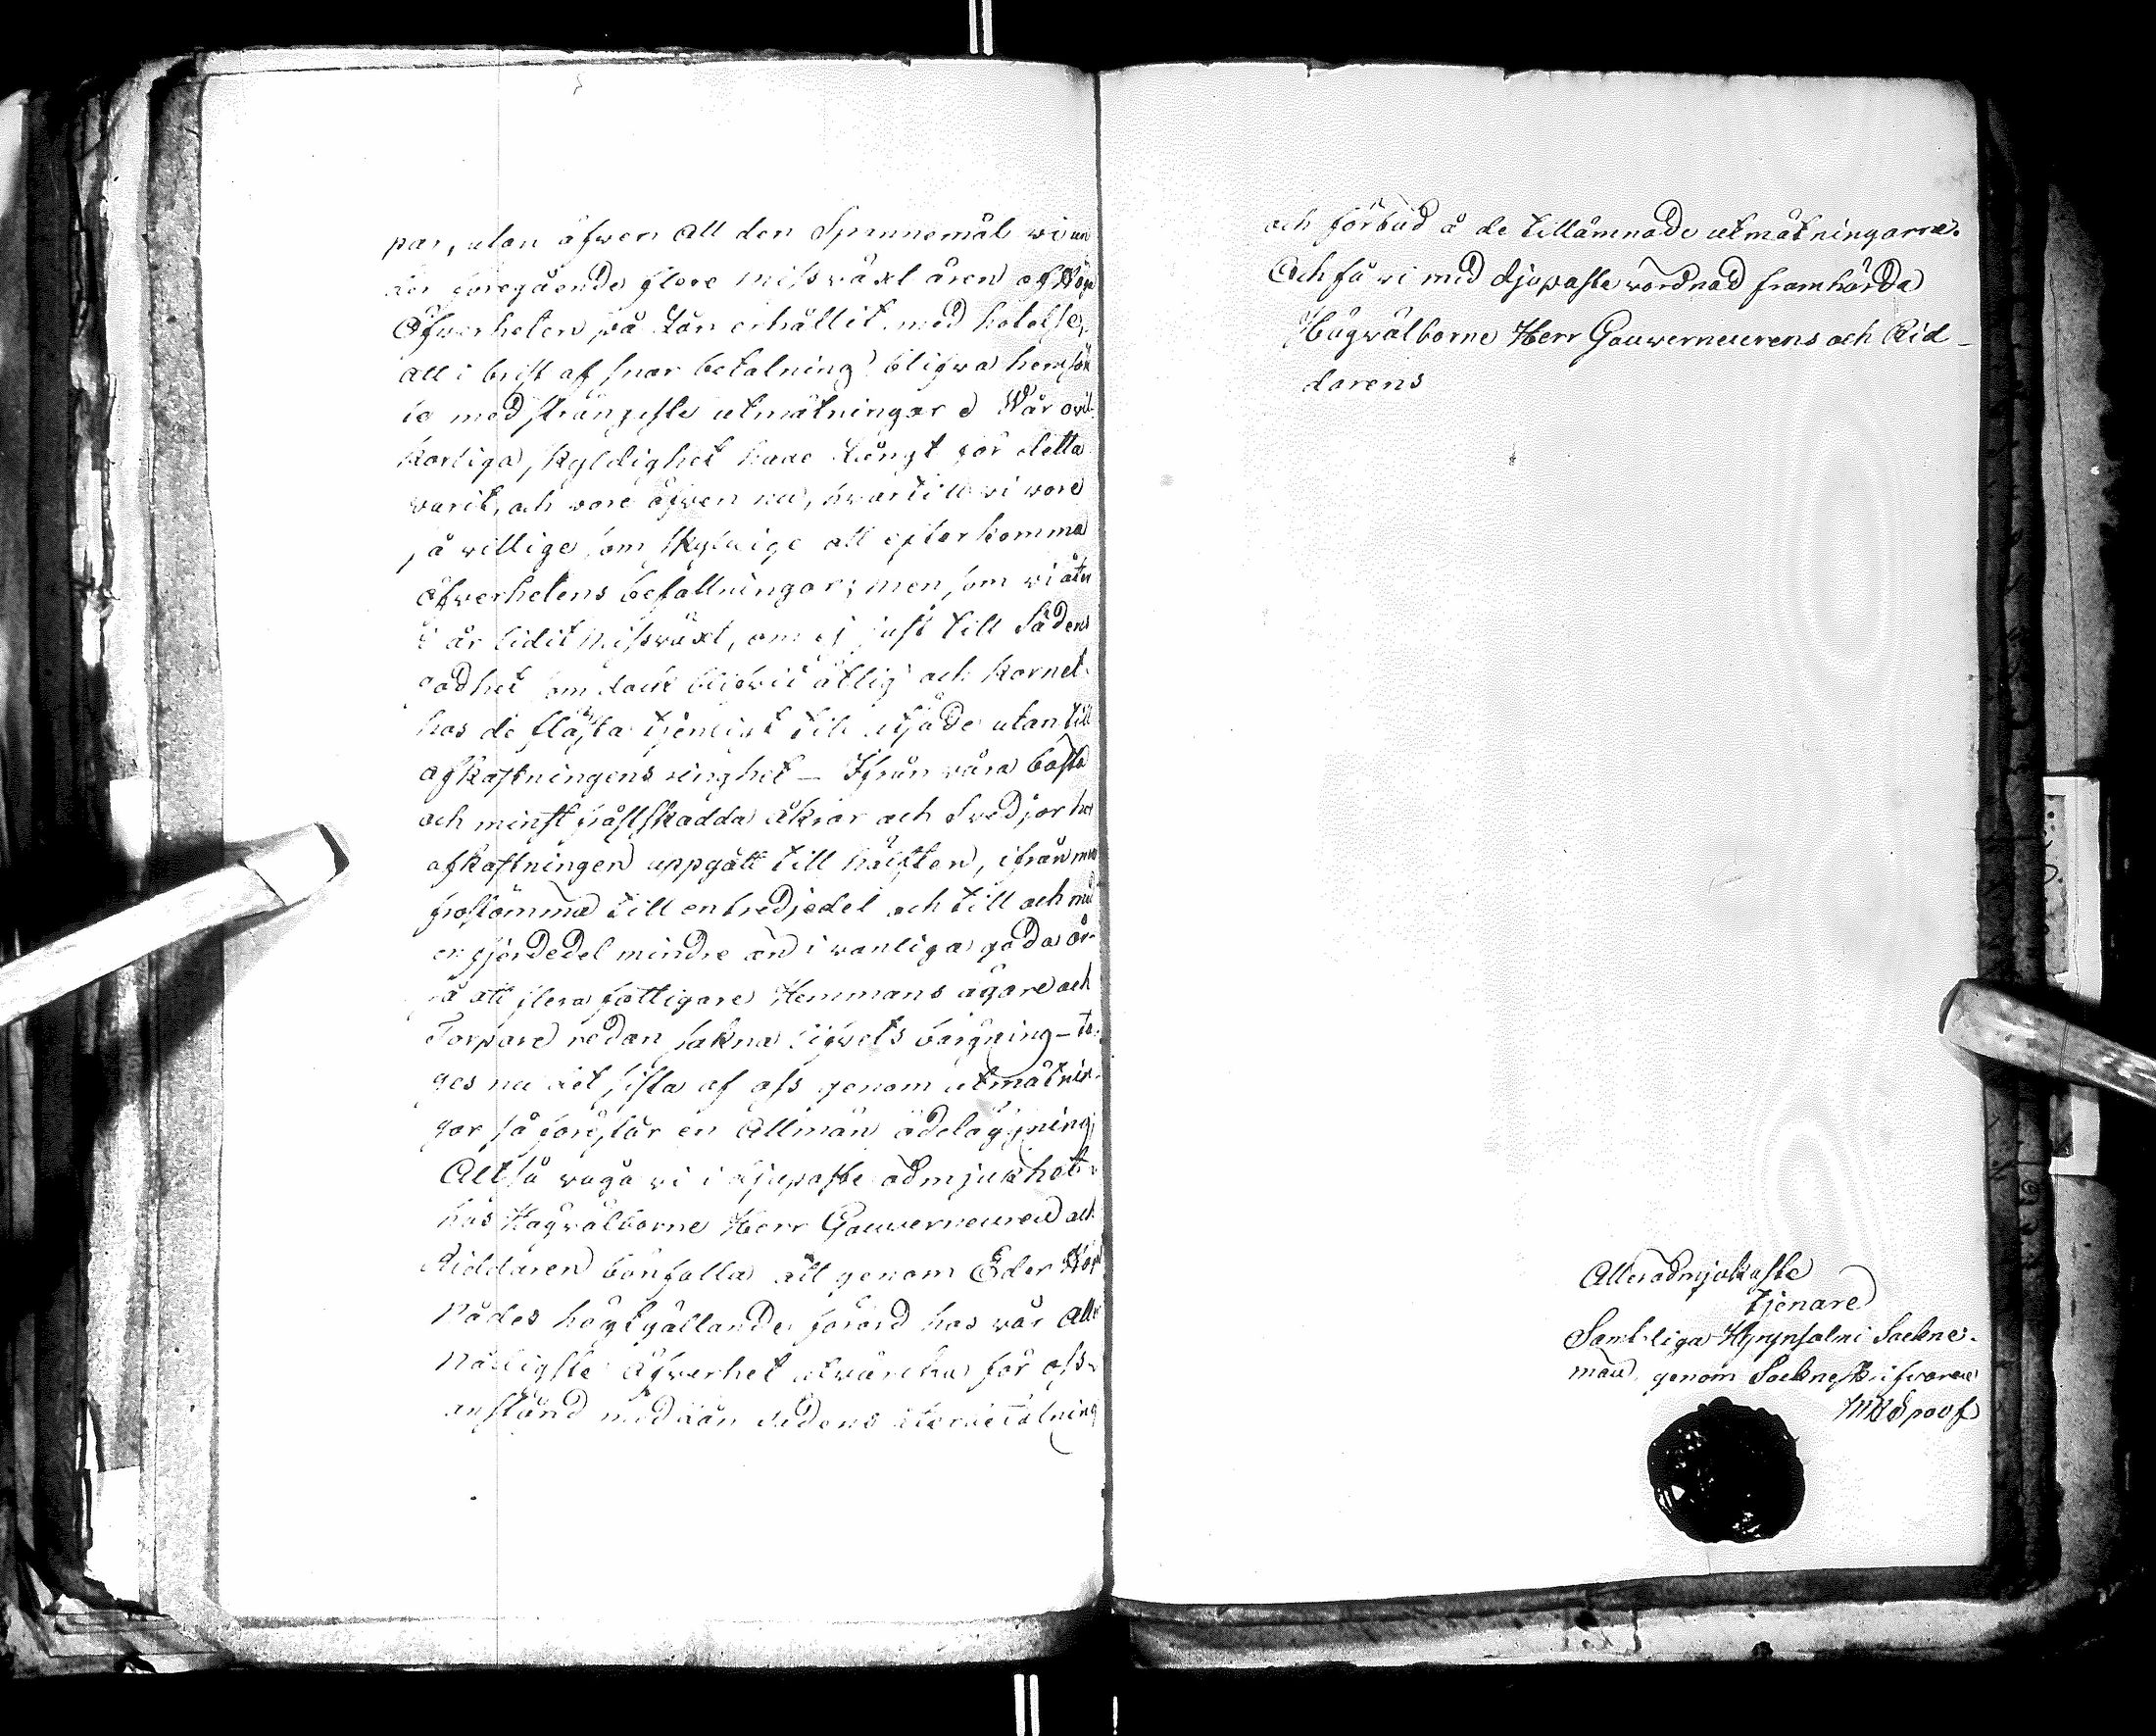 par, utan äfwen all den Spannemål wi un
der föregående flere missväxt åren af Höga
Öfwerheten på Lån erhållit med hotelse,
att i brist af snar betalning blifwa hemsök
te med strängaste utmätningar. Wår ovil-
korliga skyldighet hade längt för detta
varit, och vore äfwen nu, hvartill vi vore
så willige som skyldige att efterkomma
öfwerhetens befallningar; men, som vi åter
i år lidit missväxt, om ej just till Sädens
godhet som dock blifvit ätlig och kornet
hos de flästa tjenligt till utsäde utan till
afkastningens ringhet – Ifrån våra bästa
och minst fråstskadda Åkrar och Svedjor har
afkastningen uppgått till hälften, ifrån mer
frostömma till en tredjedel och till och med
en fjerdedel mindre än i vanliga goda år
så att flera fattigare Hemmans ägare och
Torpare redan sakna lifvets bärgning – ta-
ges nu det sista af oss genom utmätnin-
gar så förestår en Allmän ödeläggning;
Altså våga vi i djupaste ödmjukhet
hos Högvälborne Herr Gouverneuren och
Riddaren bönfalla att genom Eder Hög
Nådes högtgällande förord hos vår Aller
Nådigste Öfverhet utvärcka för oss
anstånd med Lån Sädens återbetalning
och förbud å de tillämnade utmätningarne.
Och få vi med djupaste vördnad framhärda
Högvälborne Herr Gouwerneurens och Rid-
darens
Allerödmjukaste
tjenare
Samtliga Hyrynsalmi Sockne-
män, genom Sockneskrifvaren
Spoof